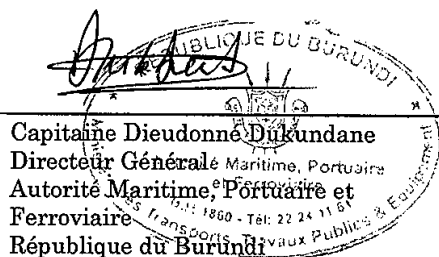 RÉPUBLIQUE DU BURUNDI
Capitaine Dieudonné Dukundane
Directeur Général
Autorité Maritime, Portuaire et
Ferroviaire
République du Burundi
Maritime, Portuaire
et Ferroviaire
1860 - Tél: 22 24 11 61
Transports, Travaux Publics & Equipement